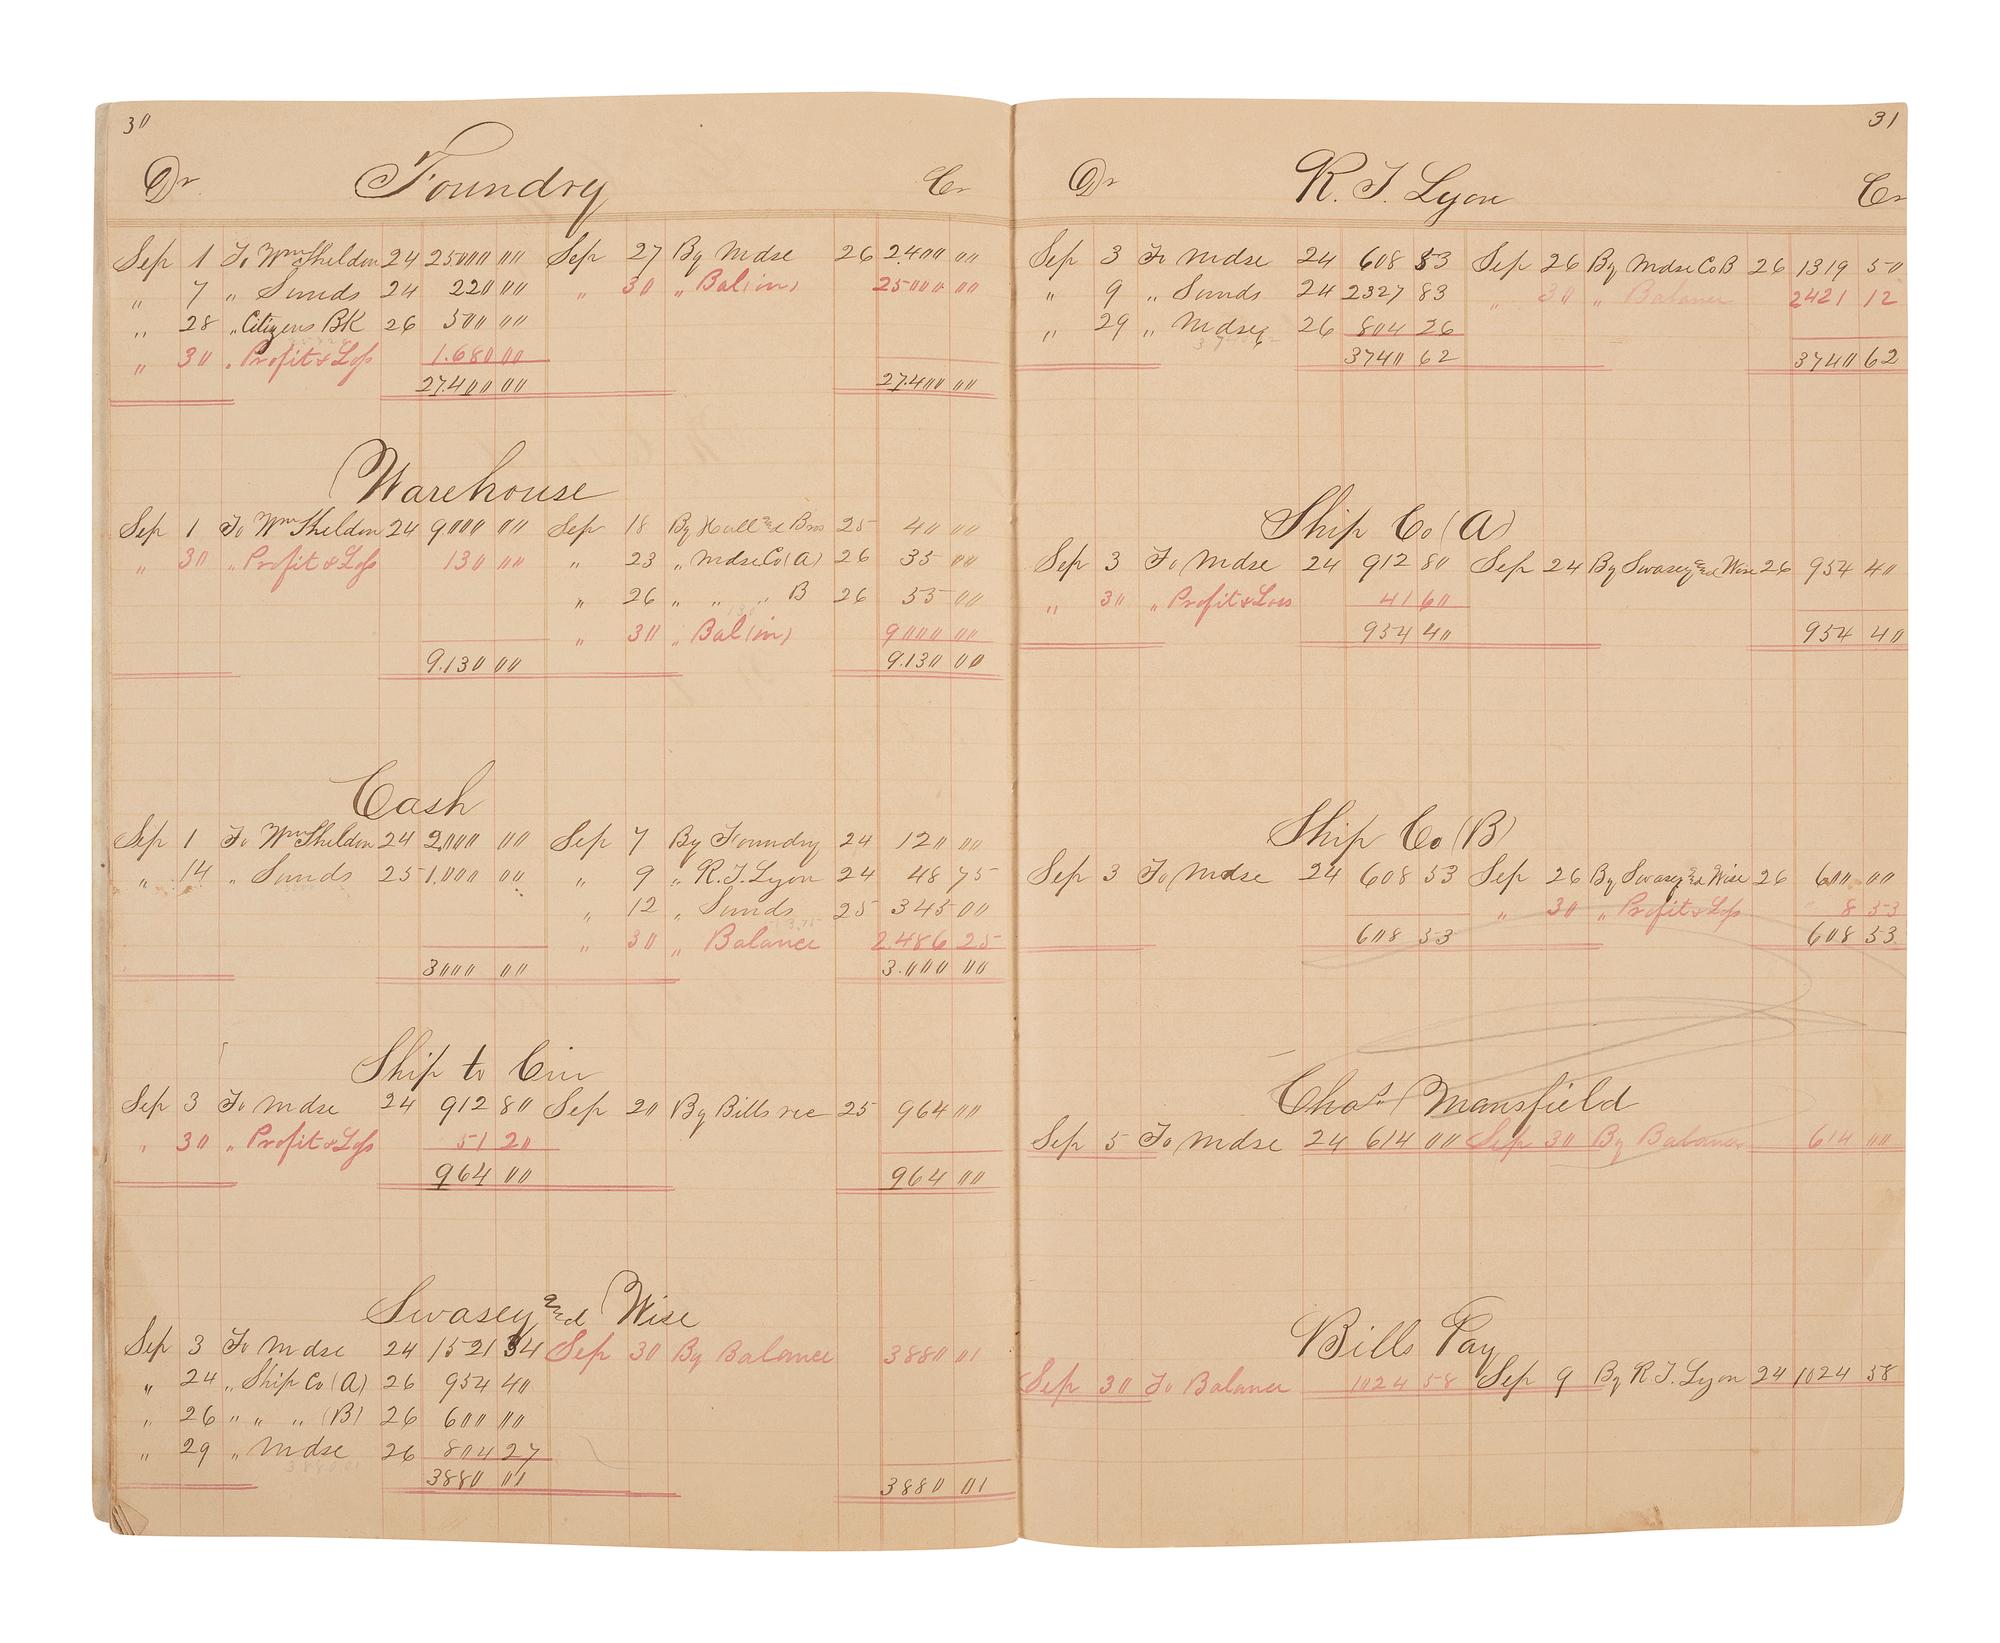 30
Dr Foundry Cr
Sep 1 To Wm Sheldon 24 25000 00 Sep 27 By Mdse 26 2400 00
" 7 " Sunds 24 220 00 " 30 " Bal(in) 25000 00
" 28 " Citizens BK 26 500 00
" 30 " Profit & Loss 1.680 00
27.400 00 27.400 00
Warehouse
Sep 1 To Wm Sheldon 24 9000 00 Sep 18 By Hall and Bros 25 40 00
" 30 " Profit & Loss 130 00 " 23 " Mdse Co (A) 26 35 00
" 26 " " " B 26 55 00
" 30 " Bal(in) 9000 00
9.130 00 9.130 00
Cash
Sep 1 To Wm Sheldon 24 2,000 00 Sep 7 By Foundry 24 120 00
" 14 " Sunds 25 1.000 00 " 9 " R. J. Lyon 24 48 75
" 12 " Sunds 25 345 00
" 30 " Balance 2.486 25
3000 00 3.000 00
Ship to Cin
Sep 3 To Mdse 24 912 80 Sep 20 By Bills rec 25 964 00
" 30 " Profit & Loss 51 20
964 00 964 00
Swasey and Wise
Sep 3 To Mdse 24 1521 34 Sep 30 By Balance 3880 01
" 24 " Ship Co (A) 26 954 40
" 26 " " " (B) 26 600 00
" 29 " Mdse 26 804 27
3880 01 3880 01
31
Dr R. J. Lyon Cr
Sep 3 To Mdse 24 608 53 Sep 26 By Mdse Co B 26 1319 50
" 9 " Sunds 24 2327 83 " 30 " Balance 2421 12
" 29 " Mdse 26 804 26
3740 62 3740 62
Ship Co (A)
Sep 3 To Mdse 24 912 80 Sep 24 By Swasey and Wise 26 954 40
" 30 " Profit & Loss 41 60
954 40 954 40
Ship Co (B)
Sep 3 To Mdse 24 608 53 Sep 26 By Swasey and Wise 26 600 00
" 30 " Profit & Loss 8 53
608 53 608 53
Chas Mansfield
Sep 5 To Mdse 24 614 00 Sep 30 By Balance 614 00
Bills Pay
Sep 30 To Balance 1024 58 Sep 9 By R. J. Lyon 24 1024 58